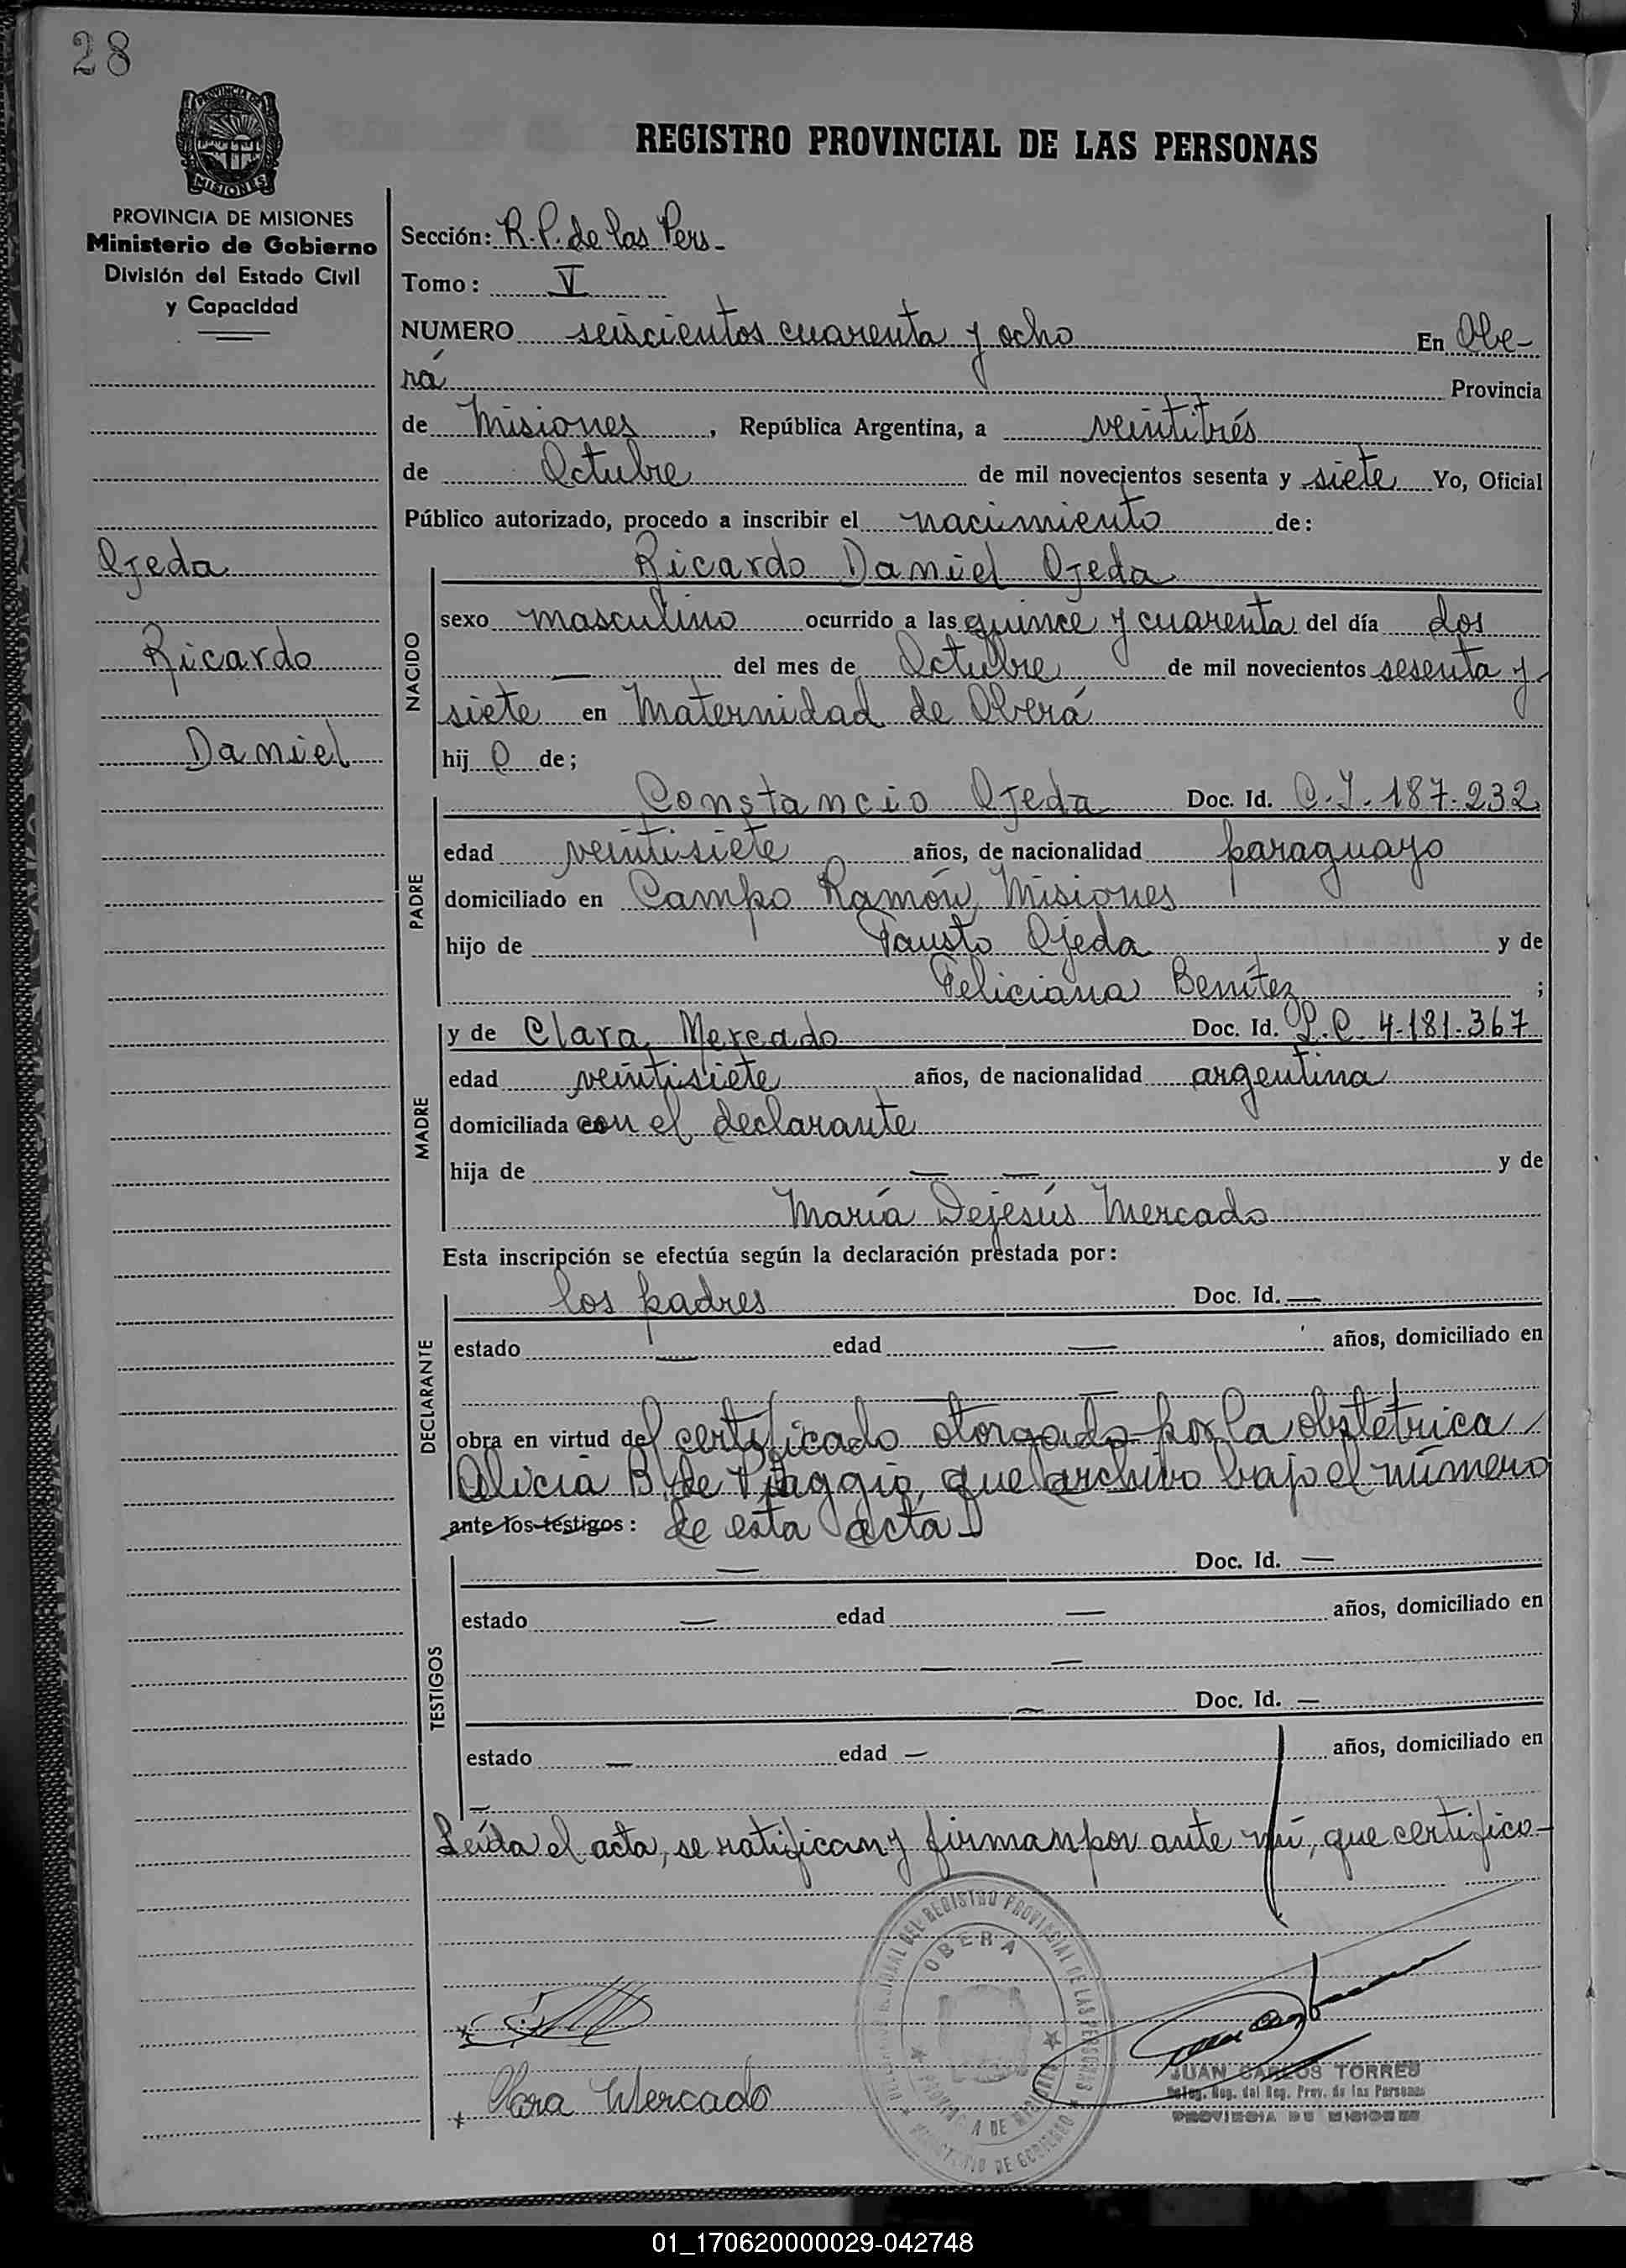 28
PROVINCIA DE MISIONES
REGISTRO PROVINCIAL DE LAS PERSONAS
PROVINCIA DE MISIONES
Ministerio de Gobierno
División del Estado Civil
y Capacidad
Ojeda
Ricardo
Daniel
Sección: R.P. de las Pers-
Tomo: V
NUMERO seiscientos cuarenta y ocho En Obe-
rá Provincia
de Misiones, República Argentina, a veintitrés
de Octubre de mil novecientos sesenta y siete Yo, Oficial
Público autorizado, procedo a inscribir el nacimiento de:
Ricardo Daniel Ojeda
NACIDO
sexo masculino ocurrido a las quince y cuarenta del día dos
— del mes de Octubre de mil novecientos sesenta y
siete en Maternidad de Oberá
hij o de;
PADRE
Constancio Ojeda Doc. Id. C.I. 187.232
edad veintisiete años, de nacionalidad paraguayo
domiciliado en Campo Ramón, Misiones
hijo de Fausto Ojeda y de
Feliciana Benítez ;
MADRE
y de Clara Mercado Doc. Id. L.C. 4.181.367
edad veintisiete años, de nacionalidad argentina
domiciliada con el declarante
hija de — — y de
María Dejesús Mercado
Esta inscripción se efectúa según la declaración prestada por:
DECLARANTE
los padres Doc. Id. —
estado — edad — años, domiciliado en
— —
obra en virtud del certificado otorgado por la obstetrica
Alicia B. de Viaggio, que archivo bajo el número
ante los testigos: de esta acta
TESTIGOS
— Doc. Id. —
estado — edad — años, domiciliado en
— —
— Doc. Id. —
estado — edad — años, domiciliado en
—
Leída el acta, se ratifican y firman por ante mí, que certifico-
DEL REGISTRO PROVINCIAL DE LAS PERSONAS
OBERA
PROVINCIA DE MISIONES
MINISTERIO DE GOBIERNO
Clara Mercado
JUAN CARLOS TORRES
Deleg. Reg. del Reg. Prov. de las Personas
PROVINCIA DE MISIONES
01_170620000029-042748